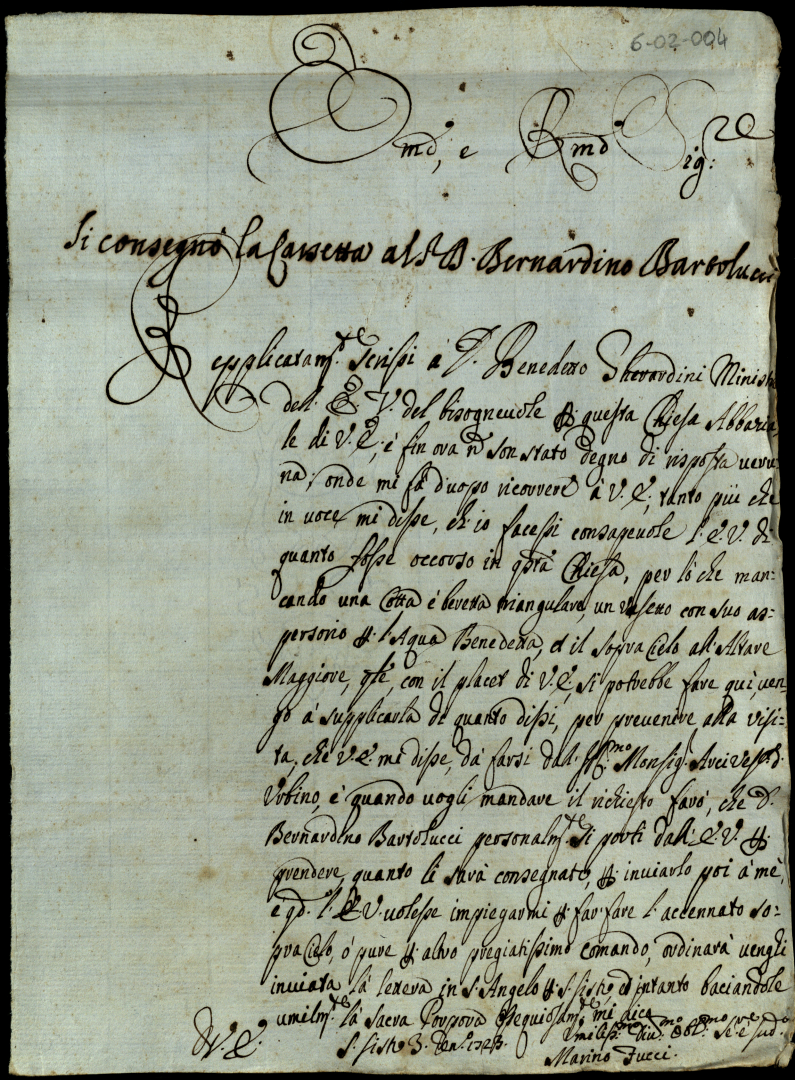 6-02-004
Em̃o, e Rmo Sig:re
Si consegnò la Cassetta al Sr D. Bernardino Bartolucci
Repplicatamte scrissi à D. Benedetto Gherardini Ministro
dell' E. V. del bisogneuole per questa Chiesa Abbazia-
le di V. E., è fin ora ñ son stato degno di risposta ueru-
na; onde mi fà d'uopo ricorrere à V. E., tanto più che
in uoce mi disse, ch'io facessi consapeuole l'E. V. di
quanto fosse occorso in qsta Chiesa, per lò che man=
cando una Cotta è beretta triangulare, un Vasetto con suo as=
persorio per l'Aqua Benedetta, et il sopra Cielo all'Altare
Maggiore, qle, con il placet di V. E., si potrebbe fare quì, uen-
gò à supplicarla di quanto dissi, per preuenire alla visi-
ta, che V. E. mi disse, dà farsi dall' Illmo Monsigr Arcivesc. d'
Urbino, è quando uogli mandare il richiesto farò, che D.
Bernardino Bartolucci personalmte si porti dall' E. V. per
prendere quanto li sarà consegnato, per inuiarlo poi à mè,
e qdo l'E. V. uolesse impiegarmi per far fare l'accennato so=
pra Cielo, ò pure per altro pregiatissimo comando, ordinarà uenghi
inuiata là lettera in S. Angelo per S. Sisto, et intanto baciandole
umilmte là Sacra Porpora ossequiosamte mi dico
D. V. E.
S. Sisto 3. 1723.
Umiliss.mo Diu.mo Obl.mo Se.re
Marino Fucci.